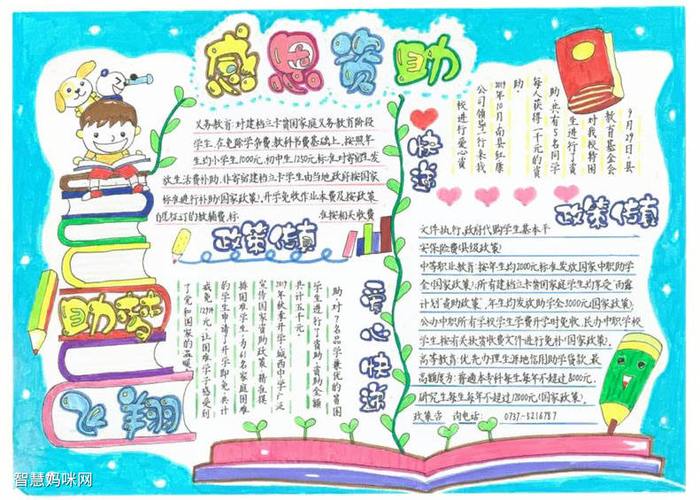 感恩资助
义务教育:对建档立卡贫困家庭义务教育阶段
学生,在免除学杂费、教科书费基础上,按照年
生均小学生1000元,初中生1250元标准对寄宿生发
放生活费补助,非寄宿建档立卡学生由当地政府按国家
标准进行补助(国家政策)。开学免收作业本费及按政策
自愿征订的教辅费,标 准按相关收费
政策传真
助,对7名品学兼优的贫困
学生进行了资助,资助金额
共计五千元。
2019年秋季开学,城西中学广泛
宣传国家资助政策,精准摸
排困难学生,为61名家庭困难
的学生申请了开学即免,共计
减免12784元,让困难学子感受到
了党和国家的温暖
爱心快递
9月29日,县
教育基金会
对我校特困
生进行了资
助,共有5名同学
每人获得一千元的资
助。
2019年10月,南县红康
公司领导一行来我
校进行爱心资
快递
政策传真
文件执行,政府代购学生基本平
安保险费(县级政策)
中等职业教育:按年生均2000元标准发放国家中职助学
金(国家政策);所有建档立卡贫困家庭学生均享受"雨露
计划"资助政策,年生均发放助学金3000元(国家政策);
公办中职所有学校学生学费开学时免收,民办中职学校
学生按有关拨款收费文件进行免补(国家政策)。
高等教育:优先办理生源地信用助学贷款,最
高额度为:普通本专科每生每年不超过8000元,
研究生每生每年不超过12000元(国家政策)。
政策咨 询电话: 0737-5216787
助梦
飞翔
智慧妈咪网